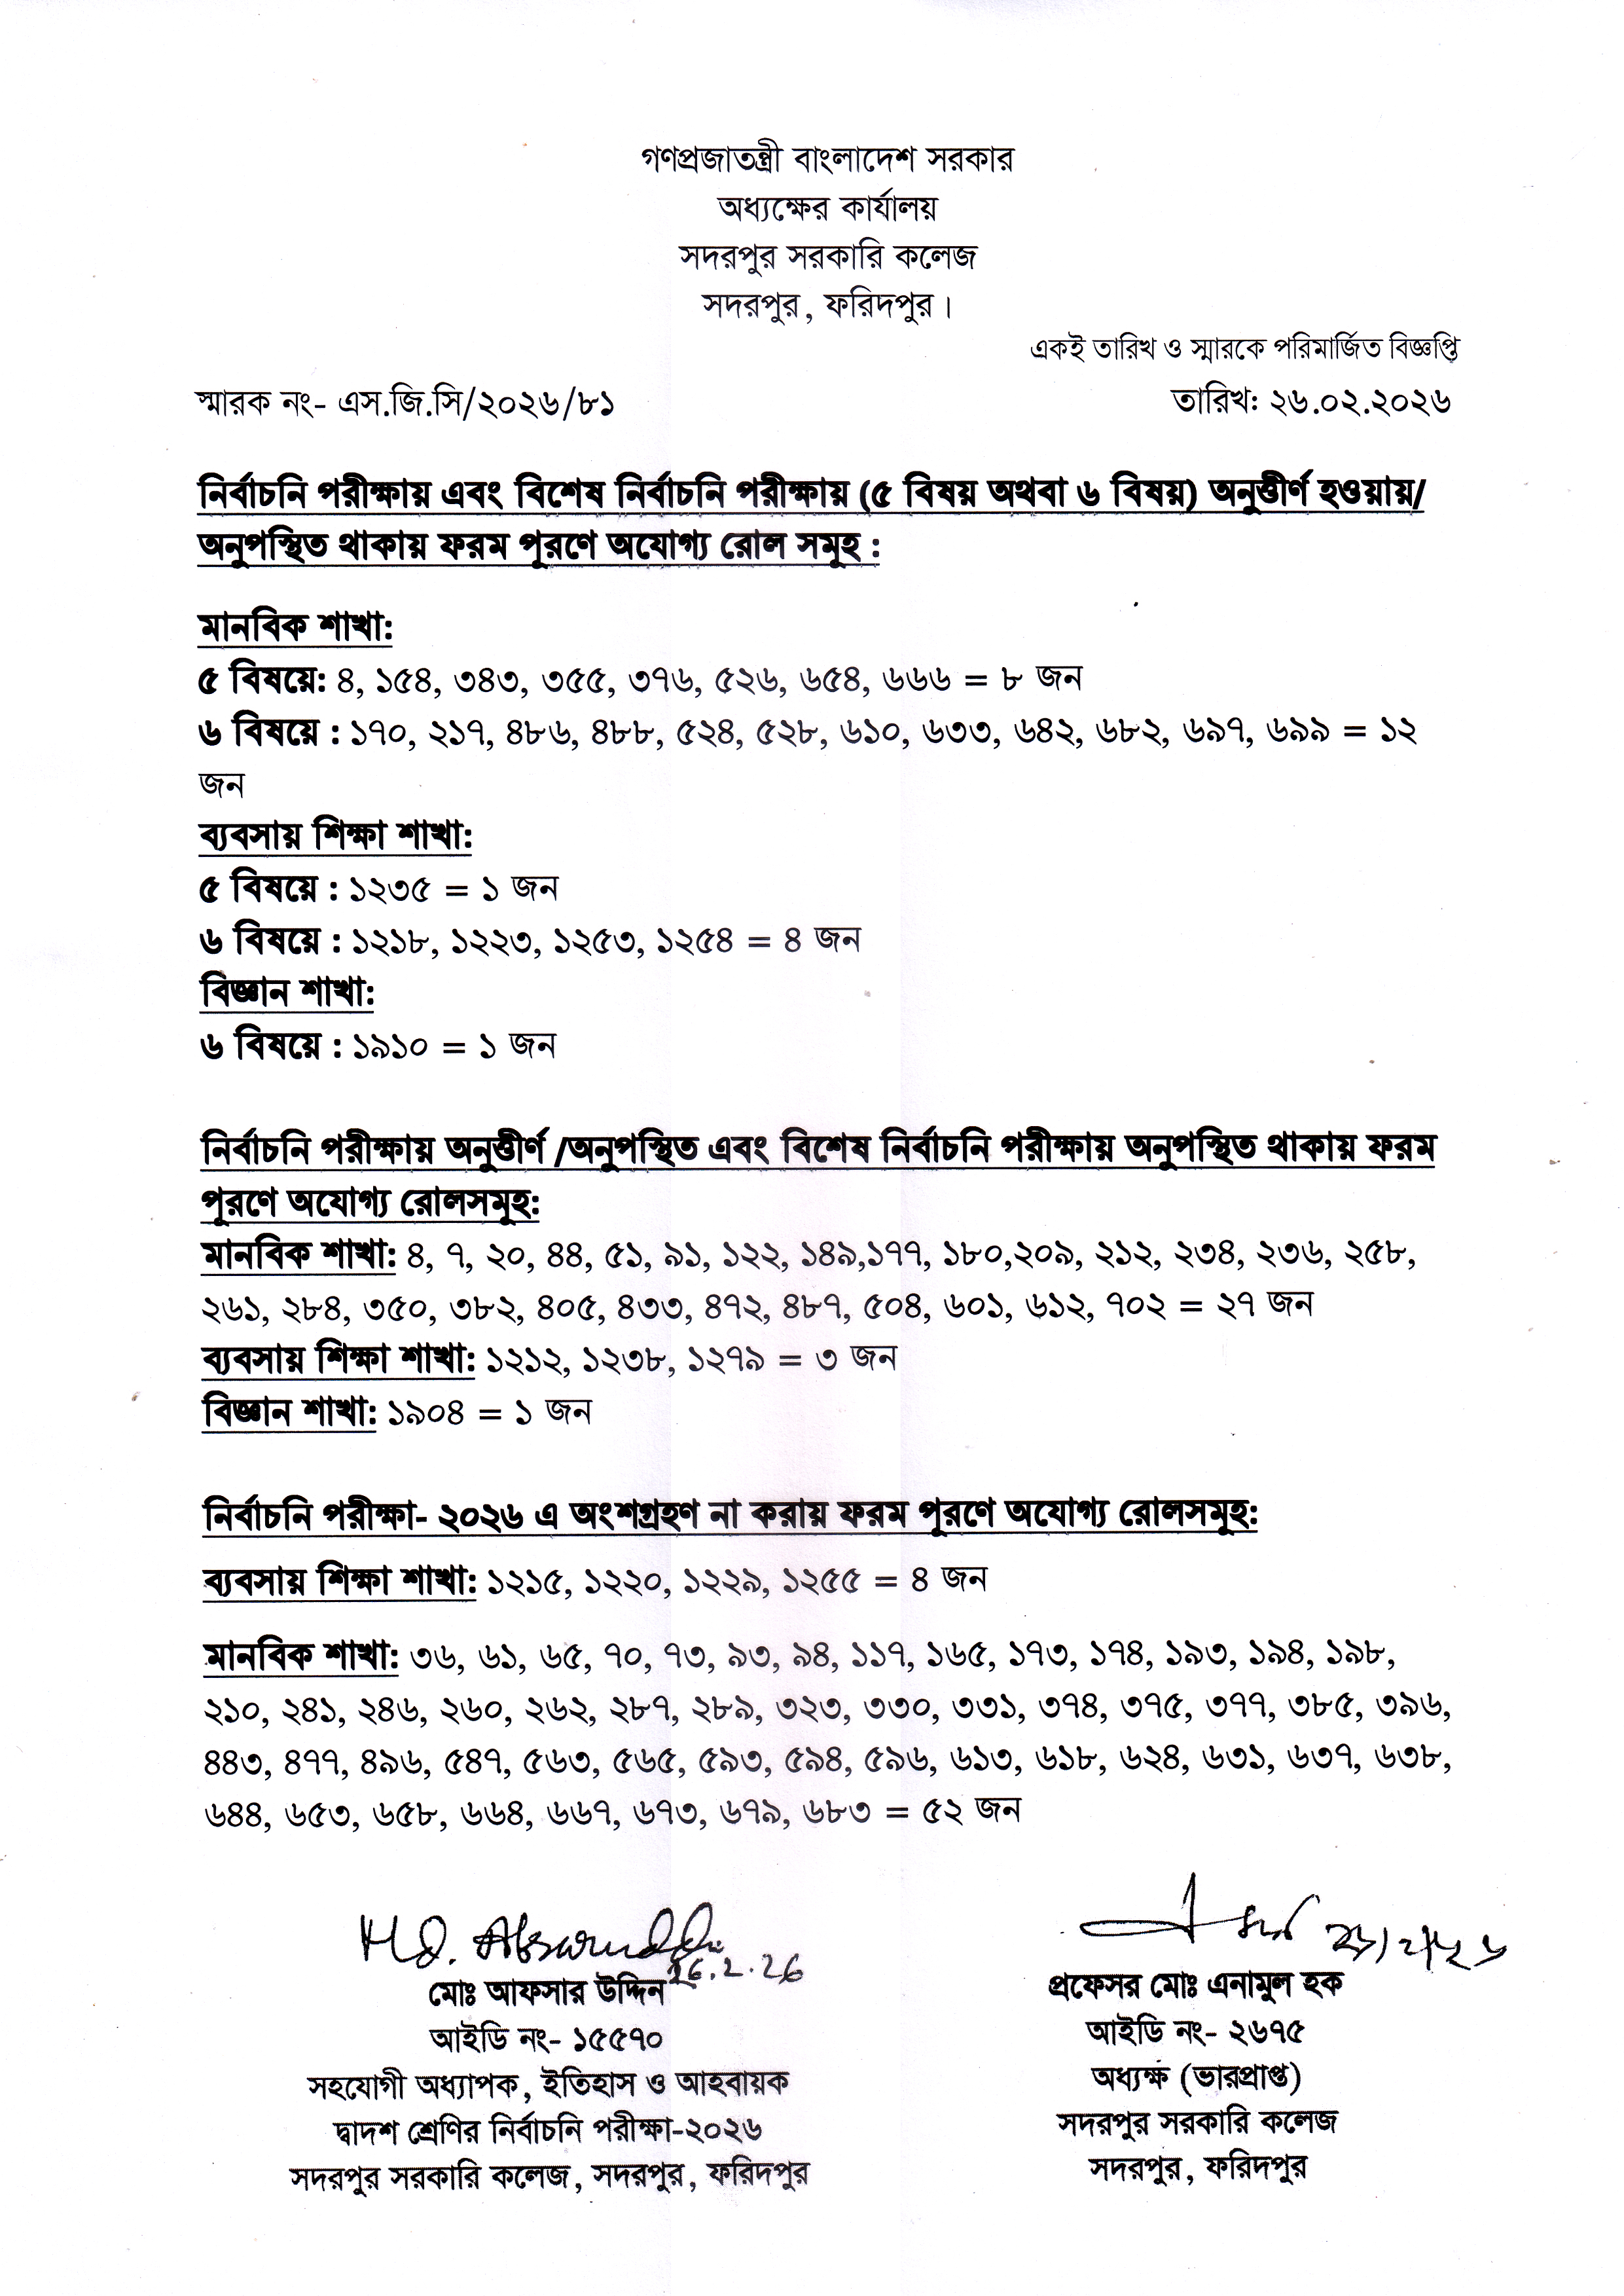 গণপ্রজাতন্ত্রী বাংলাদেশ সরকার
অধ্যক্ষের কার্যালয়
সদরপুর সরকারি কলেজ
সদরপুর, ফরিদপুর।
একই তারিখ ও স্মারকে পরিমার্জিত বিজ্ঞপ্তি
স্মারক নং- এস.জি.সি/২০২৬/৮১ তারিখঃ ২৬.০২.২০২৬
নির্বাচনি পরীক্ষায় এবং বিশেষ নির্বাচনি পরীক্ষায় (৫ বিষয় অথবা ৬ বিষয়) অনুত্তীর্ণ হওয়ায়/
অনুপস্থিত থাকায় ফরম পুরণে অযোগ্য রোল সমুহ :
মানবিক শাখা:
৫ বিষয়ে: ৪, ১৫৪, ৩৪৩, ৩৫৫, ৩৭৬, ৫২৬, ৬৫৪, ৬৬৬ = ৮ জন
৬ বিষয়ে : ১৭০, ২১৭, ৪৮৬, ৪৮৮, ৫২৪, ৫২৮, ৬১০, ৬৩৩, ৬৪২, ৬৮২, ৬৯৭, ৬৯৯ = ১২
জন
ব্যবসায় শিক্ষা শাখা:
৫ বিষয়ে : ১২৩৫ = ১ জন
৬ বিষয়ে : ১২১৮, ১২২৩, ১২৫৩, ১২৫৪ = ৪ জন
বিজ্ঞান শাখা:
৬ বিষয়ে : ১৯১০ = ১ জন
নির্বাচনি পরীক্ষায় অনুত্তীর্ণ /অনুপস্থিত এবং বিশেষ নির্বাচনি পরীক্ষায় অনুপস্থিত থাকায় ফরম
পুরণে অযোগ্য রোলসমুহ:
মানবিক শাখা: ৪, ৭, ২০, ৪৪, ৫১, ৯১, ১২২, ১৪৯,১৭৭, ১৮০,২০৯, ২১২, ২৩৪, ২৩৬, ২৫৮,
২৬১, ২৮৪, ৩৫০, ৩৮২, ৪০৫, ৪৩৩, ৪৭২, ৪৮৭, ৫০৪, ৬০১, ৬১২, ৭০২ = ২৭ জন
ব্যবসায় শিক্ষা শাখা: ১২১২, ১২৩৮, ১২৭৯ = ৩ জন
বিজ্ঞান শাখা: ১৯০৪ = ১ জন
নির্বাচনি পরীক্ষা- ২০২৬ এ অংশগ্রহণ না করায় ফরম পুরণে অযোগ্য রোলসমুহ:
ব্যবসায় শিক্ষা শাখা: ১২১৫, ১২২০, ১২২৯, ১২৫৫ = ৪ জন
মানবিক শাখা: ৩৬, ৬১, ৬৫, ৭০, ৭৩, ৯৩, ৯৪, ১১৭, ১৬৫, ১৭৩, ১৭৪, ১৯৩, ১৯৪, ১৯৮,
২১০, ২৪১, ২৪৬, ২৬০, ২৬২, ২৮৭, ২৮৯, ৩২৩, ৩৩০, ৩৩১, ৩৭৪, ৩৭৫, ৩৭৭, ৩৮৫, ৩৯৬,
৪৪৩, ৪৭৭, ৪৯৬, ৫৪৭, ৫৬৩, ৫৬৫, ৫৯৩, ৫৯৪, ৫৯৬, ৬১৩, ৬১৮, ৬২৪, ৬৩১, ৬৩৭, ৬৩৮,
৬৪৪, ৬৫৩, ৬৫৮, ৬৬৪, ৬৬৭, ৬৭৩, ৬৭৯, ৬৮৩ = ৫২ জন
26.2.26
মোঃ আফসার উদ্দিন
আইডি নং- ১৫৫৭০
সহযোগী অধ্যাপক, ইতিহাস ও আহবায়ক
দ্বাদশ শ্রেণির নির্বাচনি পরীক্ষা-২০২৬
সদরপুর সরকারি কলেজ, সদরপুর, ফরিদপুর
প্রফেসর মোঃ এনামুল হক
আইডি নং- ২৬৭৫
অধ্যক্ষ (ভারপ্রাপ্ত)
সদরপুর সরকারি কলেজ
সদরপুর, ফরিদপুর